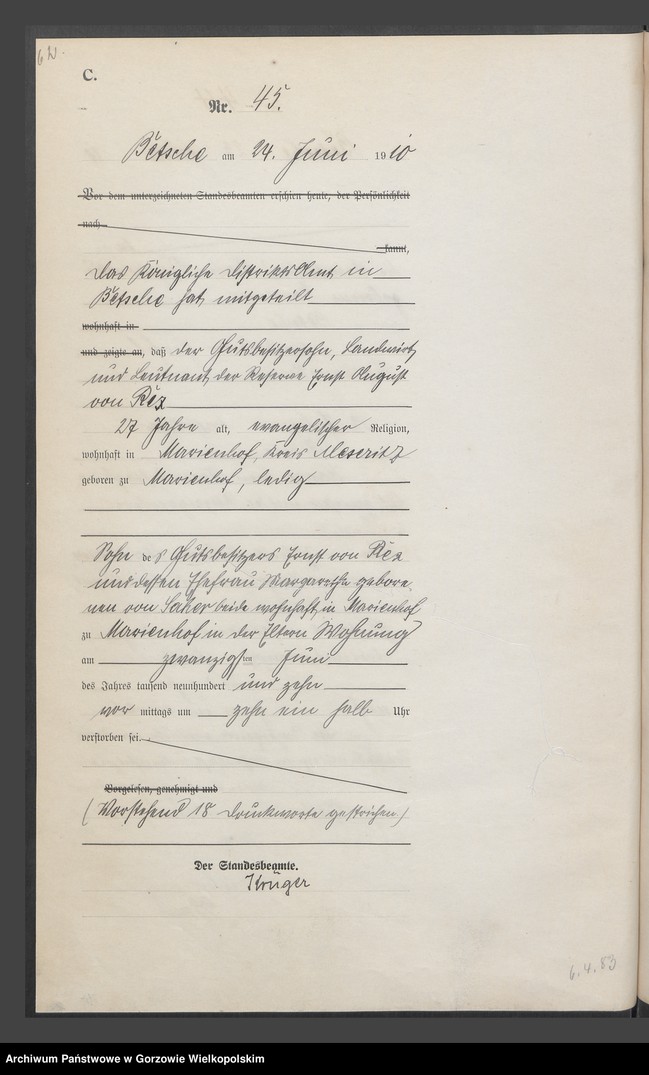 62.
C.
Nr. 45.
Betsche am 24. Juni 1910
Vor dem unterzeichneten Standesbeamten erschien heute, der Persönlichkeit
nach
kannt,
das Königliche Distriktsamt in
Betsche hat mitgeteilt
wohnhaft in
und zeigte an, daß der Gutsbesitzersohn, Landwirt
und Leutnant der Reserve Ernst August
von Rex
27 Jahre alt, evangelischer Religion,
wohnhaft in Marienhof, Kreis Meseritz
geboren zu Marienhof, ledig
Sohn des Gutsbesitzers Ernst von Rex
und dessen Ehefrau Margarethe gebore-
nen von Saher beide wohnhaft in Marienhof
zu Marienhof in der Eltern Wohnung
am zwanzigsten Juni
des Jahres tausend neunhundert und zehn
vor mittags um zehn ein halb Uhr
verstorben sei.
Vorgelesen, genehmigt und
(Vorstehend 18 Druckworte gestrichen)
Der Standesbeamte.
Krüger
6.4.83
Archiwum Państwowe w Gorzowie Wielkopolskim